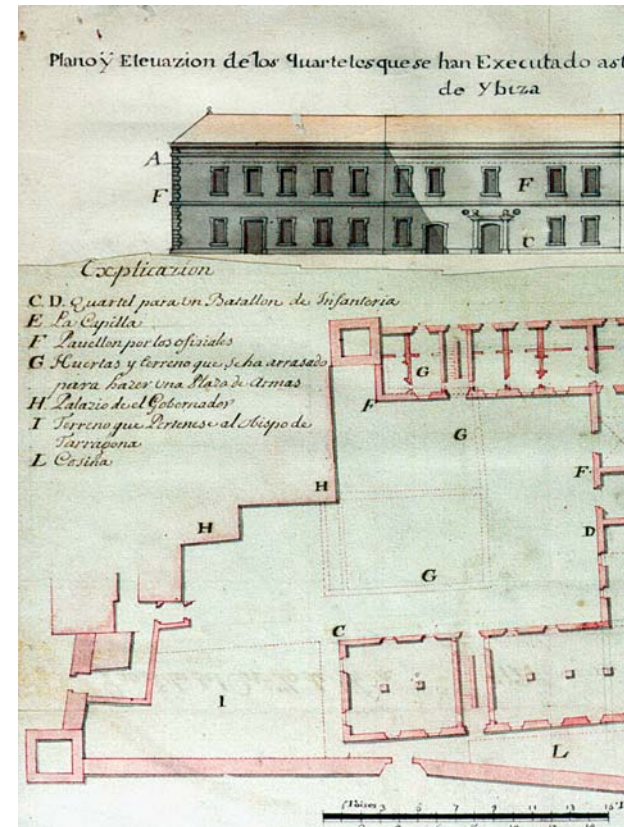 Plano ÿ Eleuazion de los quarteles que se han Executado ast
de Ybiza
A
F
F
C
Explicazion
C D. Quartel para vn Batallon de Infanteria
E La Capilla
F Pauellon por los ofisiales
G Huertas y terreno que se ha arrasado
para hazer vna Plaza de Armas
H Palazio de el Gobernador
I Terreno que Pertenese al obispo de
Tarragona
L Cosina
G
F
G
F
H
H
D
G
C
I
L
Toises 3 6 7 9 11 13 15